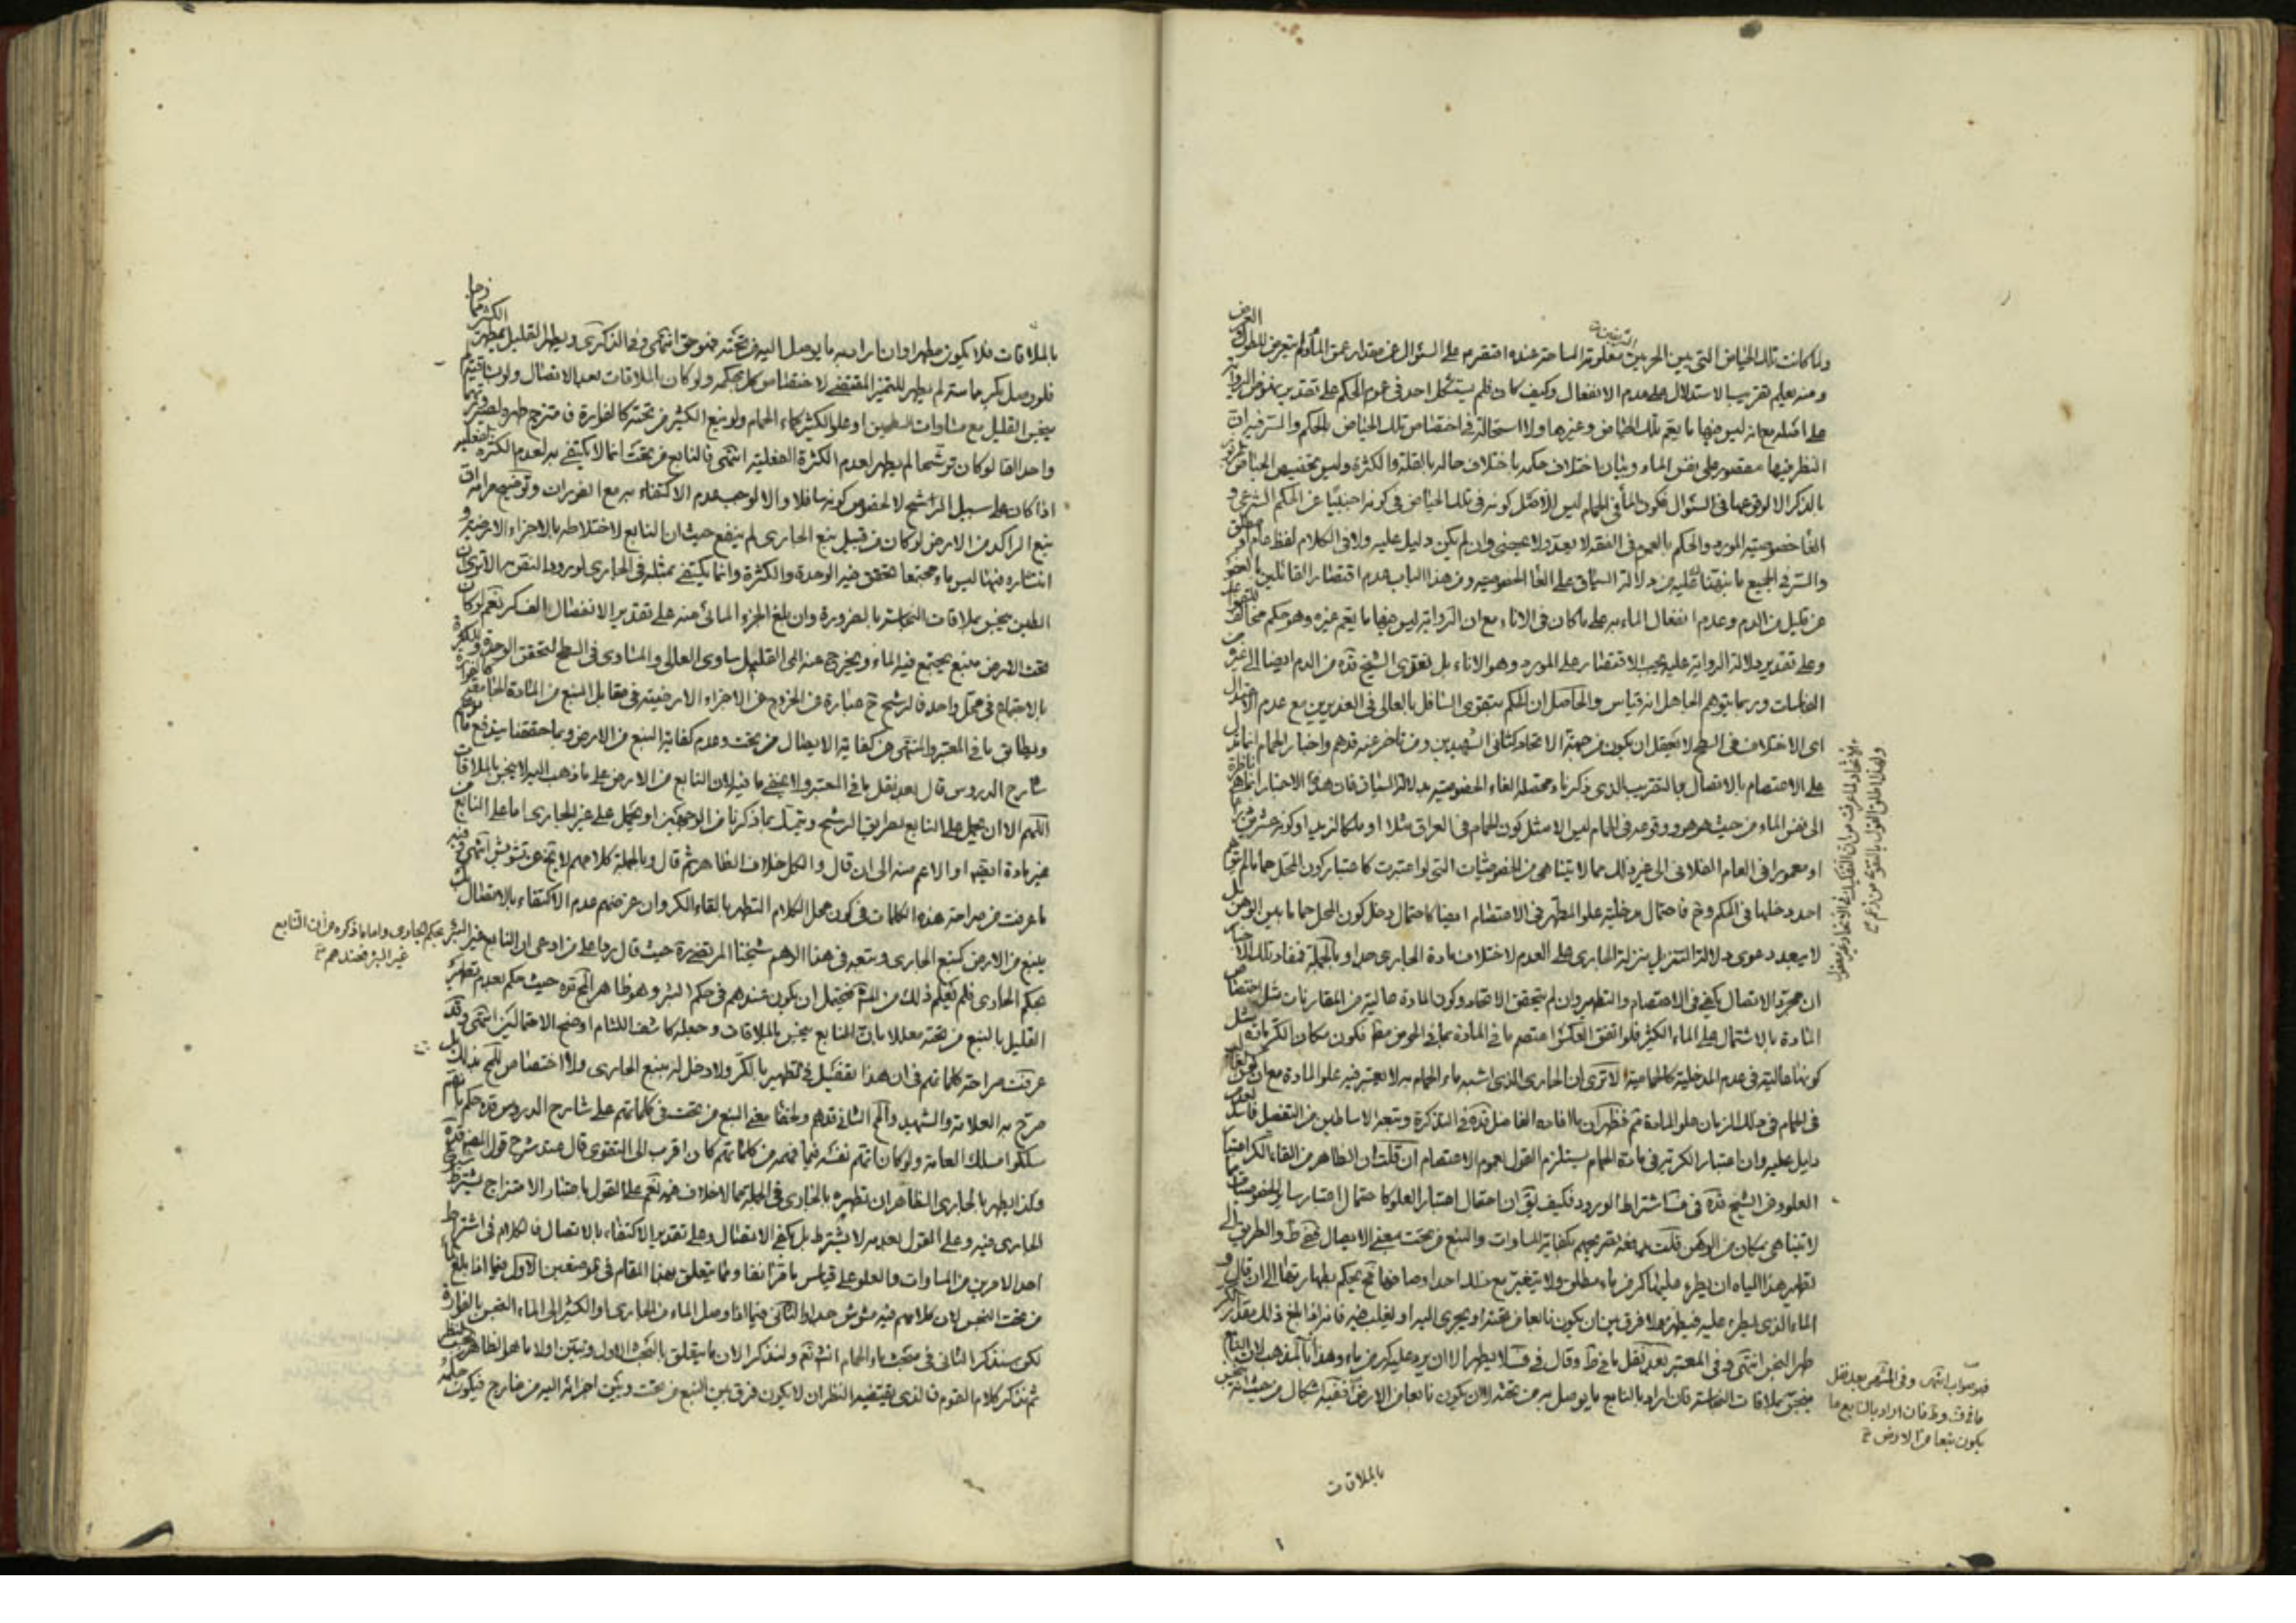 ولما كانت تلك الحياض التي بين الحرمين معلومة المساحة عنده اقتصر على السؤال عن مقدار عمق الماء ولم يتعرض للطول و العرض
ومنه يعلم تقريب الاستدلال على عدم الانفعال وكيف كان فلم يستشكل احد في عموم الحكم على تقدير نهوض الرواية
على اصله مع انه ليس فيها ما يعم تلك الحياض وغيرها ولا استحالة في اختصاص تلك الحياض بالحكم والسر فيه ان
النظر فيها مقصور على نفس الماء وبيان اختلاف حكمه باختلاف حاله بالقلة والكثرة وليس تخصيص الحياض
بالذكر الا لوقوعها في السؤال فكون الماء في الحمام ليس الا مثل كونه في تلك الحياض في كونه اجنبيا عن الحكم الشرعي و
الغاء خصوصية المورد والحكم بالعموم في الفقه لا يعد ولا يحصى وان لم يكن دليل عليه ولا في الكلام لفظ عام او مطلق
والسر في الجميع ما نبهنا عليه من دلالة السياق على الغاء الخصوصية ومن هذا الباب عدم اقتصار القائلين بالعفو
عن قليل من الدم وعدم انفعال الماء به على ما كان في الاناء مع ان الرواية ليس فيها ما يعم غيره وهو حكم مخالف
وعلى تقدير دلالة الرواية عليه يجب الاقتصار على المورد وهو الاناء بل تعدى الشيخ قده من الدم ايضا الى غيره من
النجاسات وربما يتوهم الجاهل انه قياس والحاصل ان الحكم بتقوى السافل بالعالي في الغديرين مع عدم
اي الاختلاف في السطح لا يعقل ان يكون من جهة الاتحاد كثاني الشهيدين ومن تاخر عنه قدهم واخبار الحمام انما تدل
على الاعتصام بالاتصال بالتقريب الذي ذكرناه ومحصله الغاء الخصوصية بدلالة السياق فان هذه الاخبار ناظرة
الى نفس الماء من حيث هو هو ووقوعه في الحمام ليس الا مثل كون الحمام في العراق مثلا او ملكا لزيد او كونه عشرة
او معمورا في العام الفلاني الى غير ذلك مما لا يتناهى من الخصوصيات التي لو اعتبرت كاعتبار كون المحل حماما لم يتوهم
احد دخلها في الحكم وح فاحتمال مدخلية علو المطهر في الاعتصام ايضا كاحتمال دخل كون المحل حماما بين الوهن بل
لا يبعد دعوى دلالة التنزيل بمنزلة الجاري على العدم لاختلاف مادة الجاري جدا وبالجملة فمفاد تلك
ان مجرد الاتصال يكفي في الاعتصام والتطهير وان لم يتحقق الاتحاد وكون المادة عالية من المقارنات مثل اختصاص
المادة بالاشتمال على الماء الكثير فلو اتفق العكس اعتصم ما في المادة بما في الحوض
كونها عالية في عدم المدخلية كالحمامية الا ترى ان الجاري الذي اشبه ماء الحمام به لا يعتبر فيه علو المادة مع ان
في الحمام في ذلك الزمان علو المادة ثم فظهر ان ما افاده الفاضل قده في التذكرة وتبعه الاساطين من التفصيل فاسد
دليل عليه وان اعتبار الكرية في مادة الحمام يستلزم القول بعموم الاعتصام ان قلت ان الظاهر من القاء الكر اعتبار
العلو وعن الشيخ قده في اشتراط الورود فكيف يق ان احتمال اعتبار العلو كاحتمال اعتبار ساير الخصوصيات
لا يتناهى بمكان من الوهن قلت يدفعه تصريحهم بكفاية المساوات والنبع من تحت بمعنى الايصال ففي ط والطريق الى
تطهير هذه المياه ان يطرء عليها كر من ماء مطلق ولا يتغير مع ذلك احد اوصافها فح يحكم بطهارتها الى ان قال و
الماء الذي يطرء عليه فيطهره لا فرق بين ان يكون نابعا من تحته او يجري اليه او يغلب فيه فانه اذا بلغ ذلك مقدار الكر
طهر النجس انتهى وفي المعتبر بعد نقل ما في ط وقال في ف لا يطهر الا ان يرد عليه كر من ماء وهذا المذهب لان النابع
ينجس بملاقات النجاسة فان اراد بالنابع ما يوصل به من تحته لا ان يكون نابعا من الارض ففيه اشكال من حيث انه ينجس
بالملاقات
الاتحاد لما عرفت من ان التفكيك في الاتحاد غير معقول
ولهذا اطلق القول بالتقوى من زعم
فهو صواب انتهى وفي المنتهى بعد نقل
ما في ف و ط فان اراد بالنابع ما
يكون نبعا من الارض
بالملاقات فلا يكون مطهرا وان اراد به ما يوصل اليه من تحته فهو حق انتهى وفي الذكرى ويطهر القليل بمطهر الكثير
فلو وصل بكر مماسة لم يطهر للتميز المقتضي لاختصاص كل بحكمه ولو كان الملاقات بعد الاتصال ولو بساقية لم
ينجس القليل مع مساوات السطحين او علو الكثير كماء الحمام ولو نبع الكثير من تحته كالفوارة فامتزج طهره لصيرورتهما
واحدا اما لو كان ترشحا لم يطهر لعدم الكثرة الفعلية انتهى فالنابع من تحت انما لا يكتفي به لعدم الكثرة الفعلية
اذا كان على سبيل التراشح لا لخصوص كونه سافلا والا لوجب عدم الاكتفاء به مع الفوران وتوضيح مرامه ان
نبع الراكد من الارض لو كان من قبيل نبع الجاري لم ينفع حيث ان النابع لاختلاطه بالاجزاء الارضية و
انتشاره فيها ليس ماء مجتمعا تتحقق فيه الوحدة والكثرة وانما يكتفي بمثله في الجاري لورود النص به الا ترى ان
الطين ينجس بملاقات النجاسة بالضرورة وان بلغ الجزء المائي منه على تقدير الانفصال الف كر نعم لو كان
تحت الارض منبع يجتمع فيه الماء ويخرج عنه الى القليل ساوى العالي والمساوي في السطح لتحقق الوحدة والكثرة
بالاجتماع في محل واحد فالترشح ح عبارة عن الخروج عن الاجزاء الارضية في مقابل النبع من المادة
ويطابق ما في المعتبر والمنتهى من كفاية الايصال من تحت وعدم كفاية النبع من الارض وبما حققنا يندفع ما توهم
شارح الدروس قال بعد نقل ما في المعتبر ولا يخفى ما فيه لان النابع من الارض على ما ذهب اليه لا ينجس بالملاقات
اللهم الا ان يحمل على النابع بطريق الرشح ويتمسك بما ذكرنا من الوجهين او يحمل على غير الجاري اما على النابع من
غير مادة او الاعم منه الى ان قال والكل خلاف الظاهر ثم قال وبالجملة كلامهم لا يخ عن تشويش انتهى وفيه
ما عرفت من صراحة هذه الكلمات في كون محل الكلام التطهر بالقاء الكر وان غرضهم عدم الاكتفاء بالاتصال
ينبع من الارض كنبع الجاري وتبعه في هذا الوهم شيخنا المرتضى ره حيث قال ردا على من ادعى ان النابع غير البئر
بحكم الجاري فلم يعلم ذلك من فيحتمل ان يكون عندهم في حكم البئر وهو ظاهر قده حيث حكم بعدم تطهر
القليل بالنبع من تحته معللا بان النابع ينجس بالملاقات وجعله كاشف اللثام اوضح الاحتمالين انتهى وقد
عرفت صراحة كلماتهم في ان هذا تفصيل في التطهير بالكر ولا دخل له بنبع الجاري ولا اختصاص بل
صرح به العلامة والشهيد والمحقق الثاني قدهم ولخفاء معنى النبع من تحت في كلماتهم على شارح الدروس قده حكم بانهم
سلكوا مسلك العامة ولو كان اتهم نفسه فيما فهمه من كلماتهم كان اقرب الى التقوى قال عند شرح قول المصنف قده
وكذا يطهر بالجاري الظاهر ان تطهره بالجاري في الجملة مما لا خلاف فيه نعم على القول باعتبار الامتزاج يشترط
الجاري فيه وعلى القول بعدمه لا يشترط بل يكفي الاتصال وعلى تقدير الاكتفاء بالاتصال فالكلام في اشتراط
احد الامرين من المساوات والعلو على قياس ما مر آنفا ومما يتعلق بهذا المقام في موضعين الاول فيما اذا بلغ الماء
من تحت النجس لان كلامهم فيه مشوش جدا والثاني فيما اذا وصل الماء من الجاري او الكثير الى الماء النجس بالفوارة
لكن سنذكر الثاني في مبحث ماء الحمام انش تعم ولنذكر الان ما يتعلق بالبحث الاول ونبين اولا ما هو الظاهر بحسب النظر
ثم نذكر كلام القوم فالذي يقتضيه النظر ان لا يكون فرق بين النبع من تحت وبين اجرائه اليه من خارج فيكون حكمه
بحكم الجاري واما ما ذكره من ان النابع
غير البئر فعندهم